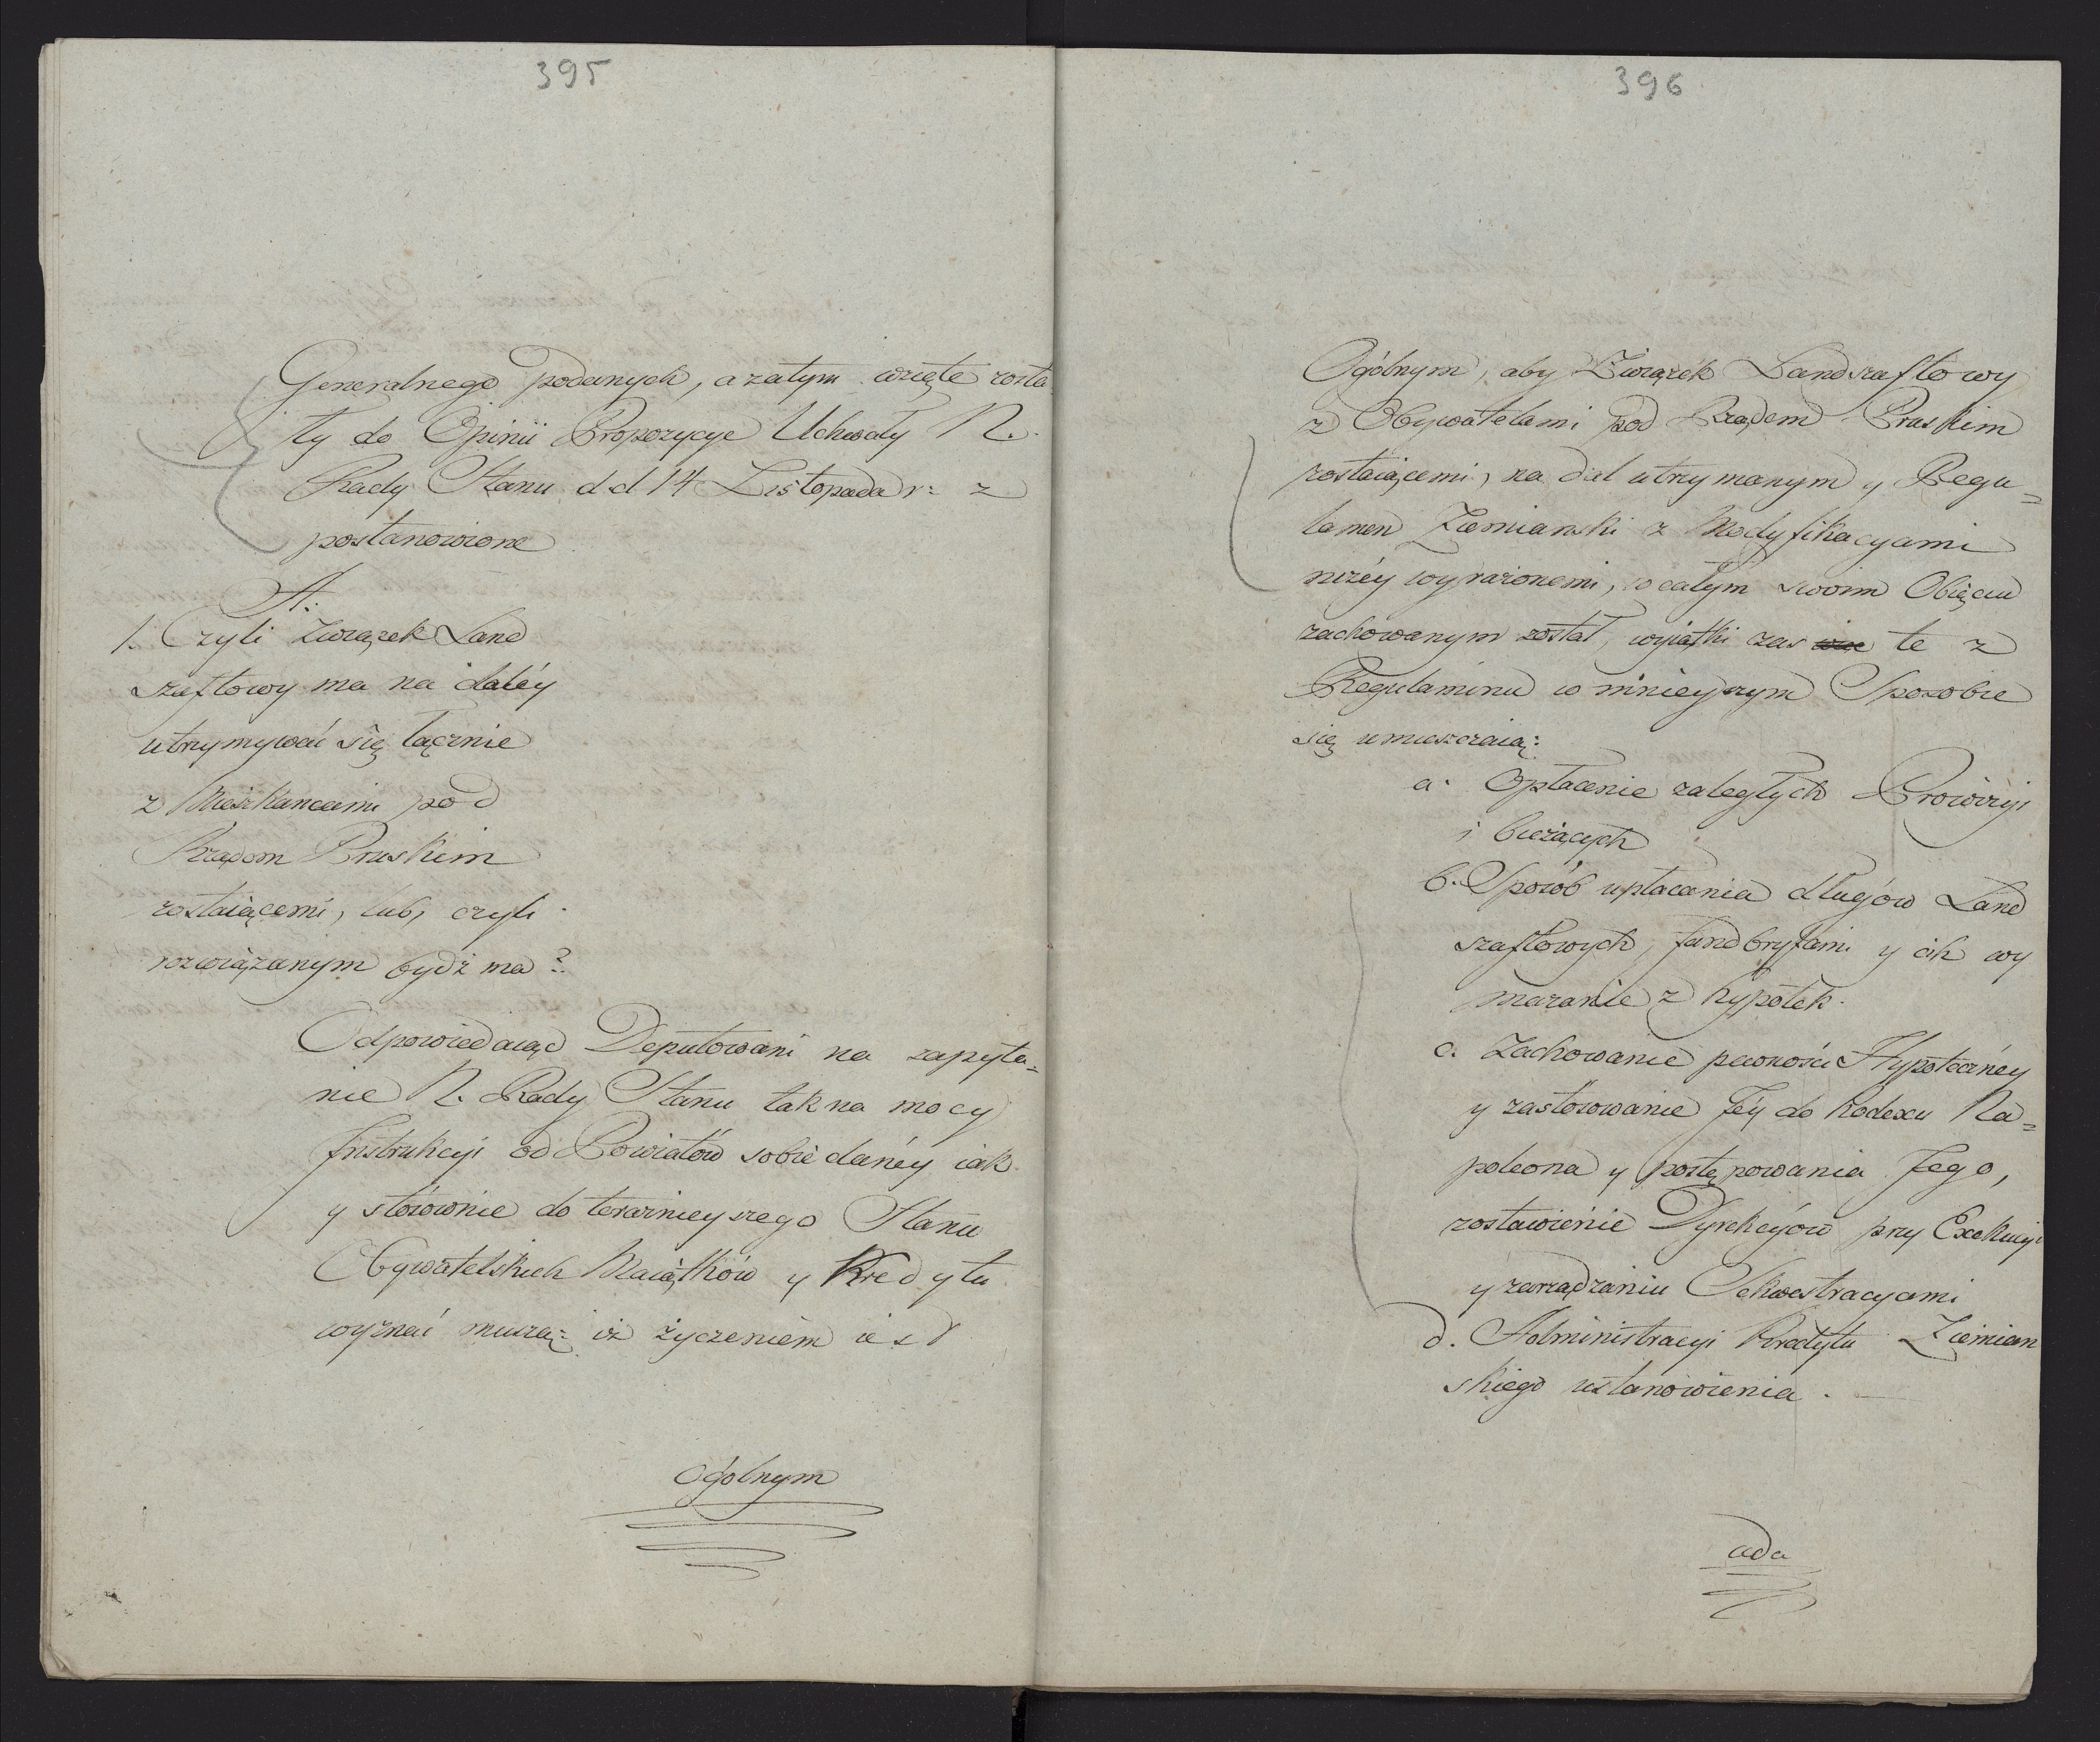 395
Generalnego podanych, a zatym wzięte zosta
ły do Opinii Propozycye Uchwały N.
Rady Stanu d d 14 Listopada r: z
postanowione
A.
1. Czyli Związek Land
szaftowy ma na daléy
utrzymywać się łącznie
z Mieszkancami pod
Rządem Pruskim
zostaiącemi, lub, czyli
rozwiązanym bydź ma?
Odpowiedaiąc Deputowani na zapyta=
nie N. Rady Stanu tak na mocy
Instrukcyi od Powiatów sobie danéy iak
y stósownie do teraznieyszego Stanu
Obywatelskich Maiątków y Kredytu
wyznać muszą: iż życzeniem iest
Ogólnym
396
Ogólnym, aby Związek Landszaftowy
z Obywatelami pod Rządem Pruskim
zostaiącemi, na dal utrzymanym y Regu=
lamen Ziemianski z Modyfikacyami
niżéy wyrażonemi, w całym swoim Obięciu
zachowanym został, wyiątki zas te z
Regulaminu w ninieyszym Sposobie
się umieszczaią:
a. Opłacenie zaległych Prowizyi
i bieżących
b. Sposób upłacania długów Land
szaftowych, fandbryfami y ich wy
mazanie z hypotek.
c. Zachowanie pewności Hypoteczney
y zastosowanie Jéy do Kodexu Na=
poleona y postępowania Jego,
zostawienie Dyrekcyów przy Exekucyi
y zarządzaniu Sekwestracyami
d. Administracyi Kredytu Ziemian
skiego ustanowienia. —
ad a